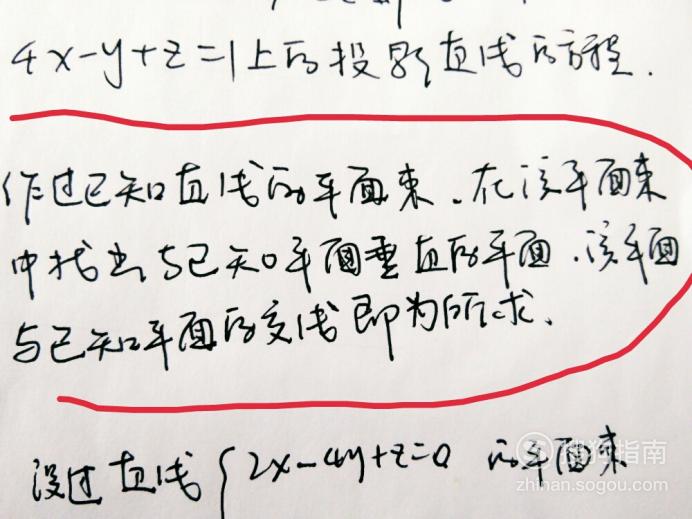 4x-y+z=1上的投影直线的方程.
作过已知直线的平面束.在该平面束
中找出与已知平面垂直的平面.该平面
与已知平面的交线即为所求.
设过直线{2x-4y+z=0 的平面束
搜狗指南
zhinan.sogou.com